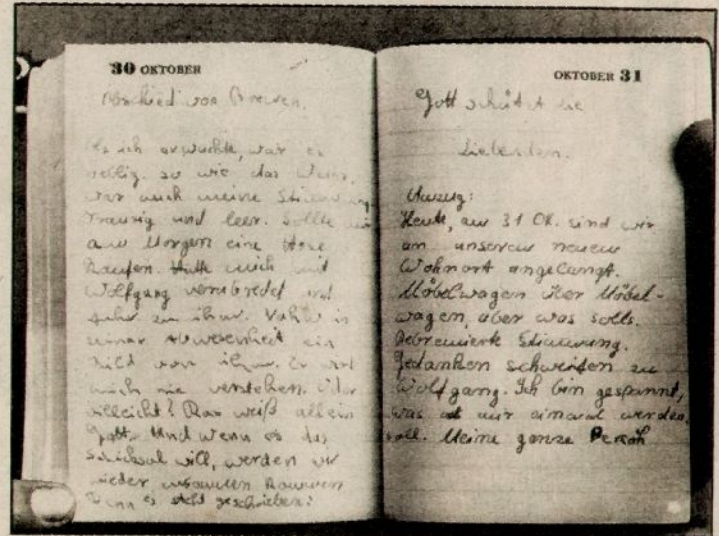 30 OKTOBER
Abschied von Bremen.
Als ich erwachte, war es
neblig. so wie das Wetter,
war auch meine Stimmung
Traurig und leer. Sollte mir
am Morgen eine Hose
kaufen. Hatte mich mit
Wolfgang verabredet und
fuhr zu ihm. Nahm in
seiner Abwesenheit ein
Bild von ihm. Er wird
mich nie verstehen. Oder
villeicht? Das weiß allein
Gott. Und wenn es das
Schicksal will, werden wir
wieder zusammen kommen
Denn es steht geschrieben:
OKTOBER 31
Gott schützt die
Liebenden.
Auszug:
Heute, am 31 Ok. sind wir
an unserem neuem
Wohnort angelangt.
Möbelwagen über Möbel-
wagen, aber was solls.
Debremierte Stimmung.
Gedanken schweifen zu
Wolfgang. Ich bin gespannt,
was aus mir einmal werden
soll. Meine ganze Person